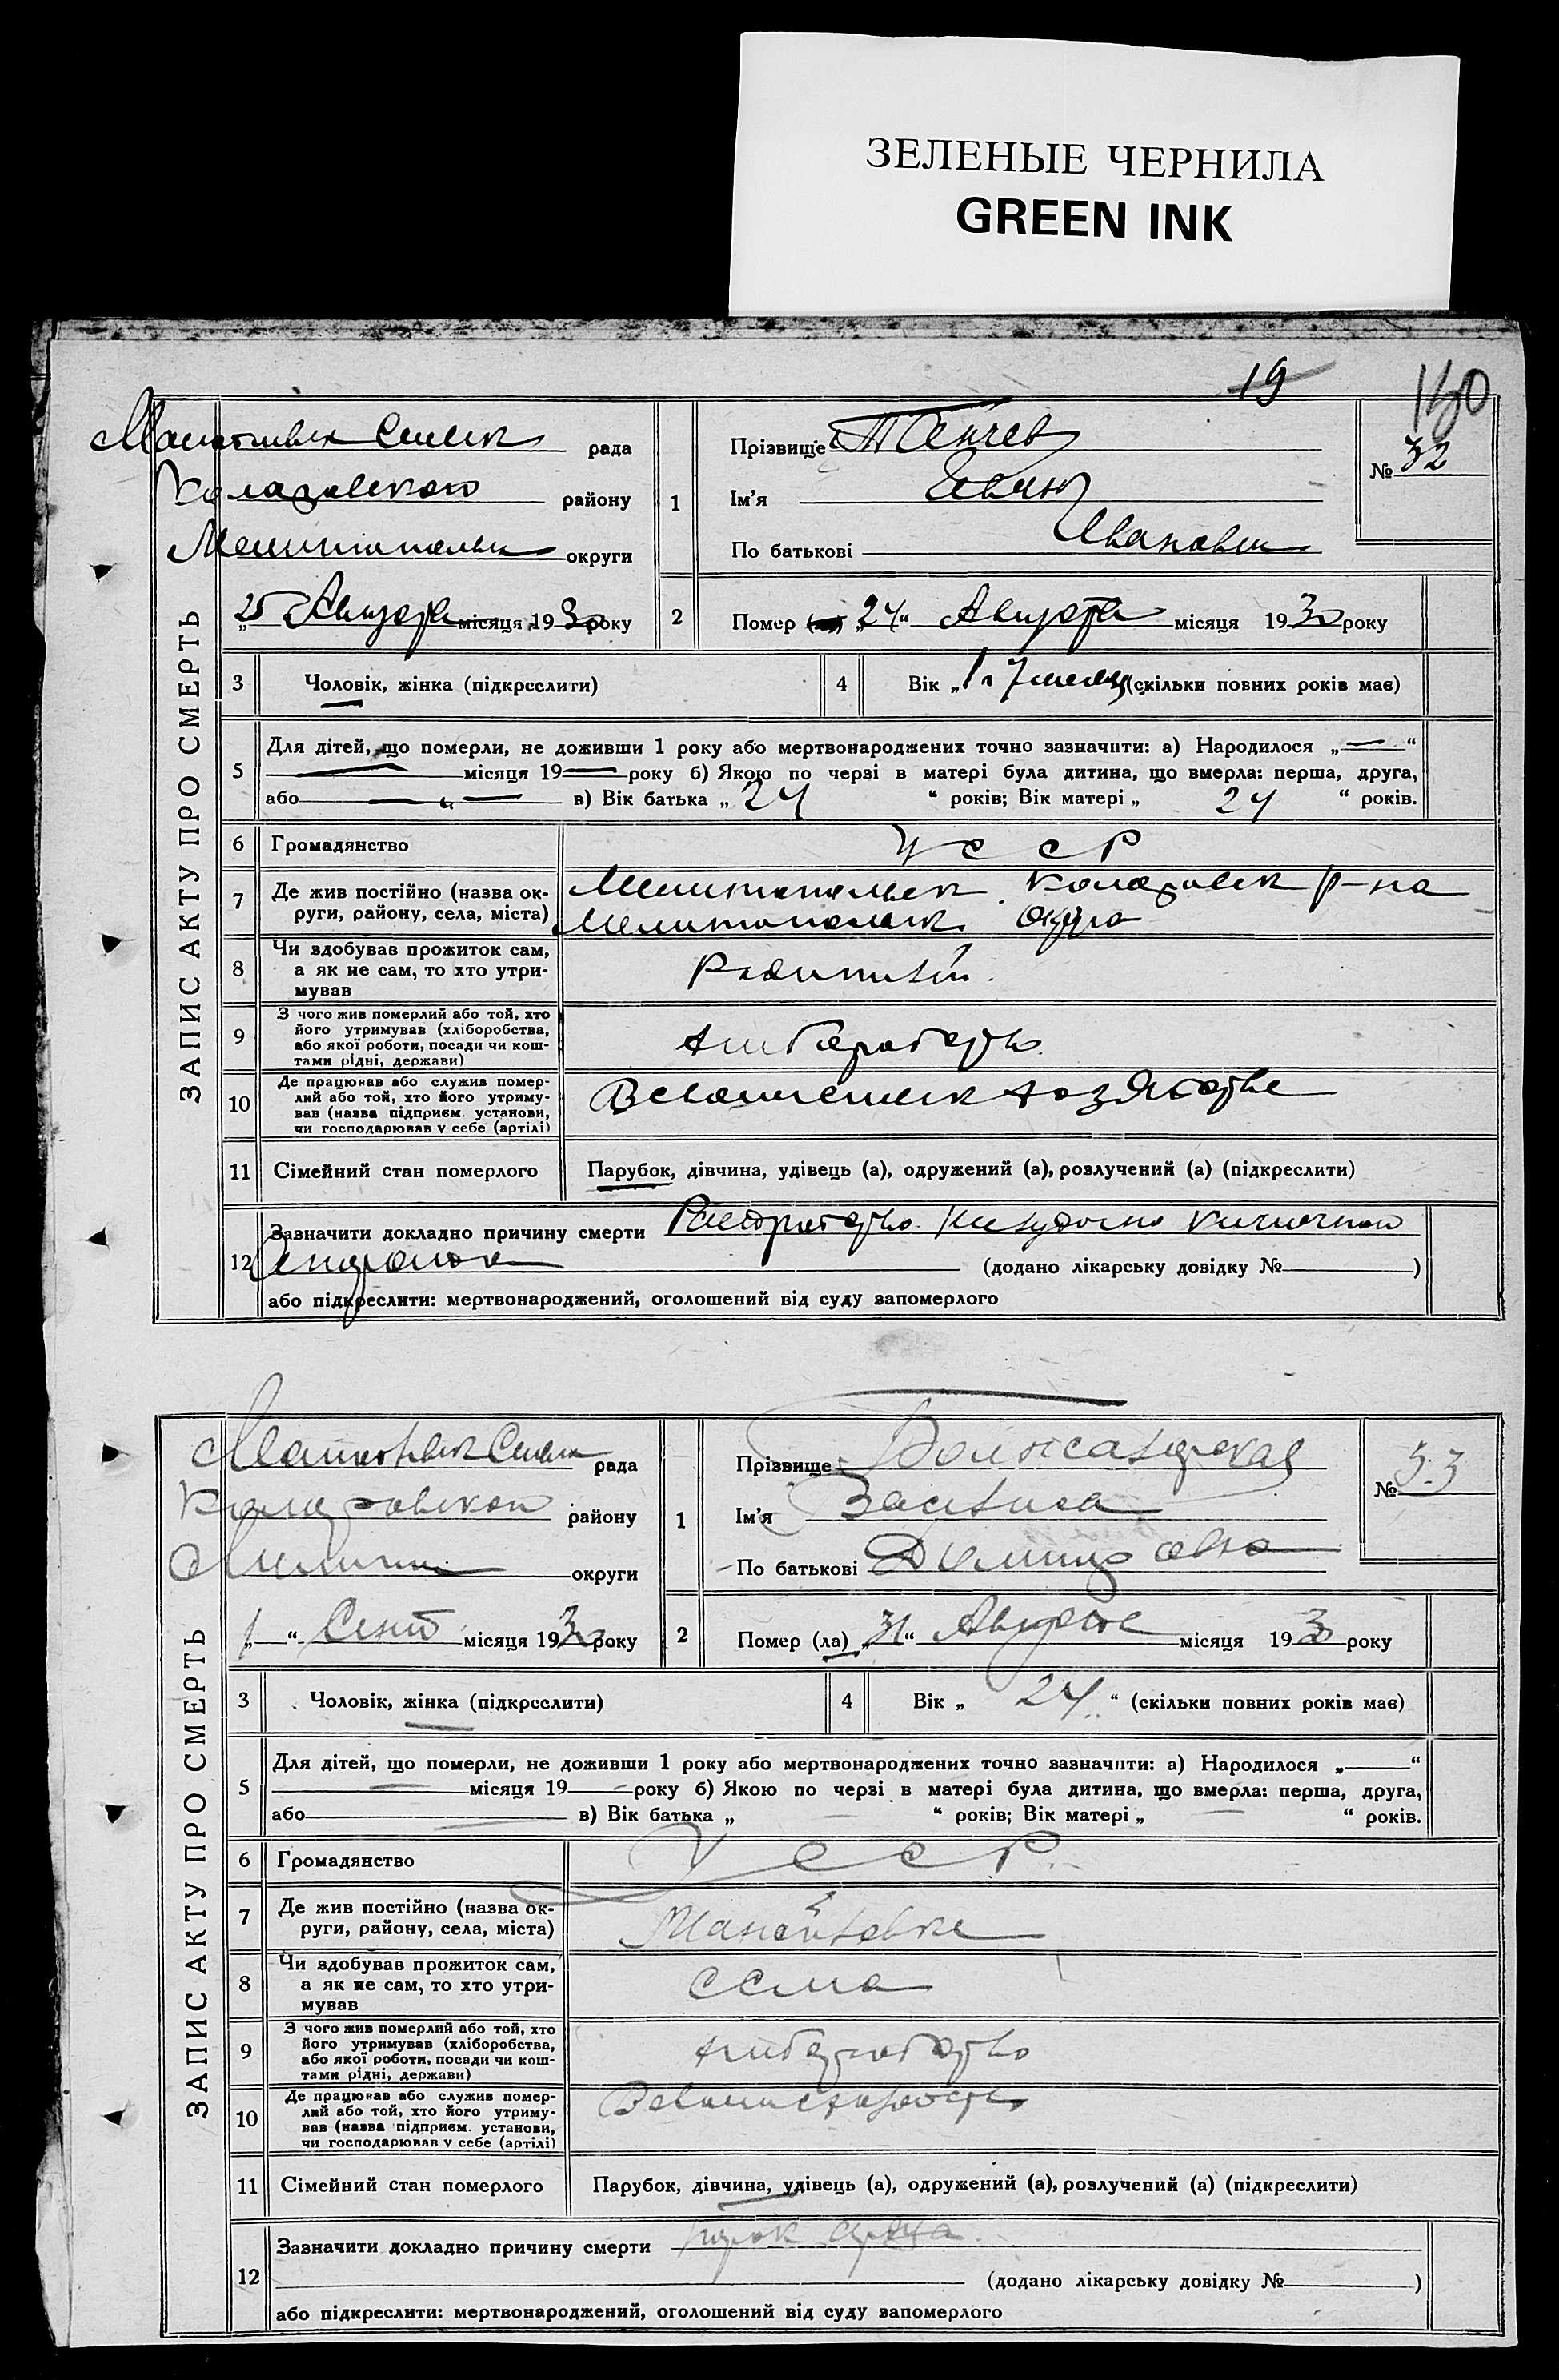 ЗЕЛЕНЫЕ ЧЕРНИЛА
GREEN INK
19
150
ЗАПИС АКТУ ПРО СМЕРТЬ
рада
району
Мелитопольск округи
„25“ Августа місяця 1930 року
1
Прізвище Тенчев
Ім'я
По батькові Иванович
№ 32
2
Помер „24“ Августа місяця 1930 року
3 Чоловік, жінка (підкреслити)
4 Вік „1 г 7 месяц (скільки повних років має)
5
Для дітей, що померли, не доживши 1 року або мертвонароджених точно зазначити: а) Народилося „—“
— місяця 19— року б) Якою по черзі в матері була дитина, що вмерла: перша, друга,
або — „ — в) Вік батька „ 24 “ років; Вік матері „ 24 “ років.
6 Громадянство УССР
7
Де жив постійно (назва ок-
руги, району, села, міста)
р-на
Мелитопольск. округа
8
Чи здобував прожиток сам,
а як не сам, то хто утри-
мував
Родители
9
З чого жив померлий або той, хто
його утримував (хліборобства,
або якої роботи, посади чи кош-
тами рідні, держави)
хліборобство
10
Де працював або служив помер-
лий або той, хто його утриму-
вав (назва підприєм. установи,
чи господарював у себе (артілі)
В своем сельск хозяйстве
11 Сімейний стан померлого Парубок, дівчина, удівець (а), одружений (а), розлучений (а) (підкреслити)
12
Зазначити докладно причину смерти
(додано лікарську довідку №—)
або підкреслити: мертвонароджений, оголошений від суду запомерлого
ЗАПИС АКТУ ПРО СМЕРТЬ
рада
району
округи
„1“ Сент місяця 1930 року
1
Прізвище
Ім'я
По батькові
№ 33
2
Помер (ла) „31“ Августа місяця 1930 року
3 Чоловік, жінка (підкреслити)
4 Вік „ 24 “ (скільки повних років має)
5
Для дітей, що померли, не доживши 1 року або мертвонароджених точно зазначити: а) Народилося „—“
— місяця 19— року б) Якою по черзі в матері була дитина, що вмерла: перша, друга,
або — в) Вік батька „ — “ років; Вік матері „ — “ років.
6 Громадянство УССР
7
Де жив постійно (назва ок-
руги, району, села, міста)
8
Чи здобував прожиток сам,
а як не сам, то хто утри-
мував
сама
9
З чого жив померлий або той, хто
його утримував (хліборобства,
або якої роботи, посади чи кош-
тами рідні, держави)
хліборобство
10
Де працював або служив помер-
лий або той, хто його утриму-
вав (назва підприєм. установи,
чи господарював у себе (артілі)
11 Сімейний стан померлого Парубок, дівчина, удівець (а), одружений (а), розлучений (а) (підкреслити)
12
Зазначити докладно причину смерти порок сердца
(додано лікарську довідку №—)
або підкреслити: мертвонароджений, оголошений від суду запомерлого